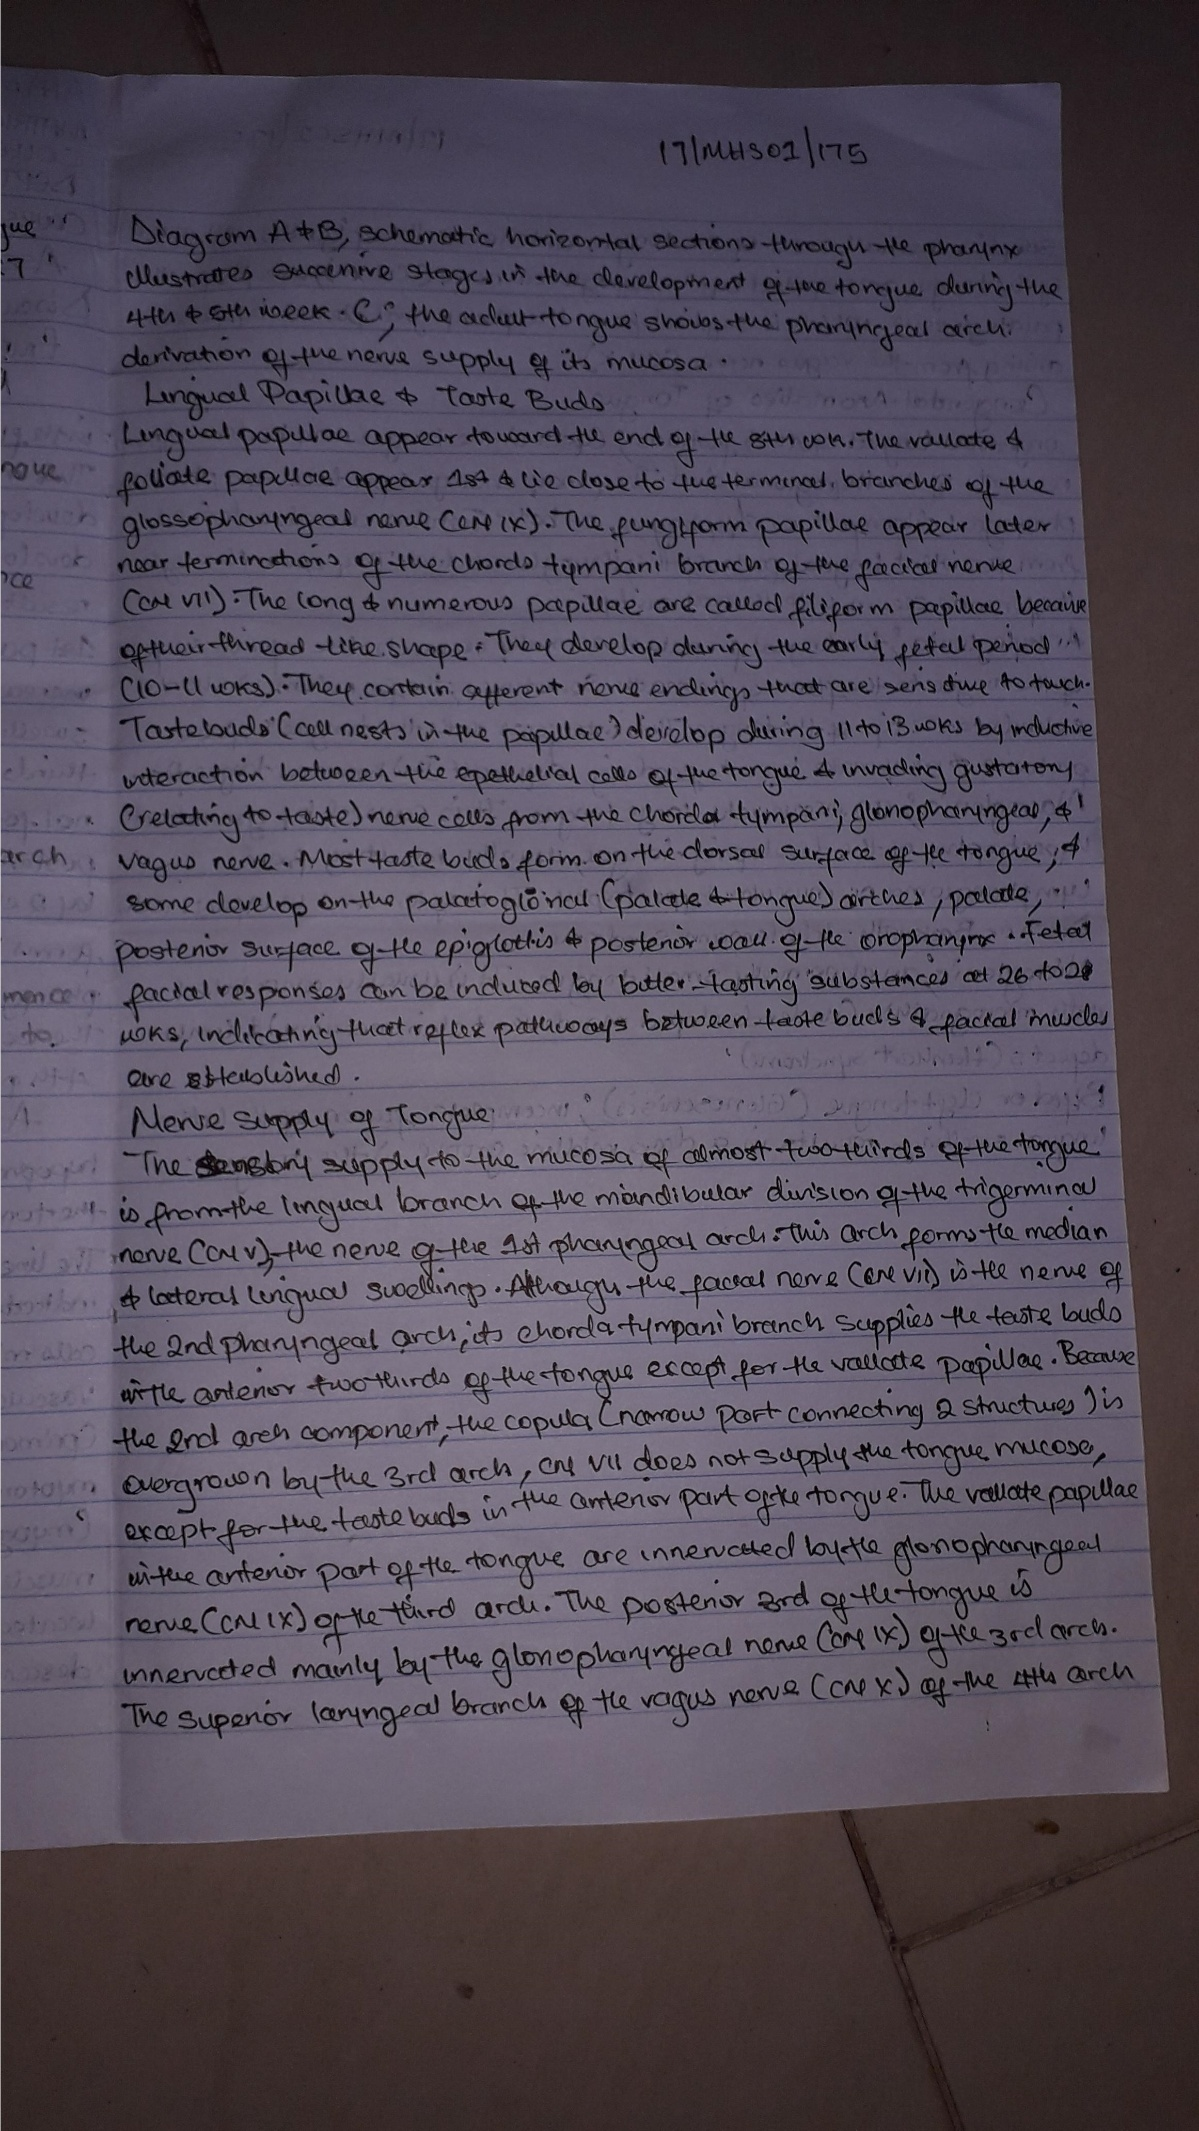 17/MHS01/175
Diagram A & B, schematic horizontal sections through the pharynx
illustrates successive stages in the development of the tongue during the
4th & 5th week. C; the adult tongue shows the pharyngeal arch
derivation of the nerve supply of its mucosa.
Lingual Papillae & Taste Buds
Lingual papillae appear toward the end of the 8th wk. The vallate &
foliate papillae appear 1st & lie close to the terminal branches of the
glossopharyngeal nerve (CN IX). The fungiform papillae appear later
near terminations of the chorda tympani branch of the facial nerve
(CN VII). The long & numerous papillae are called filiform papillae because
of their thread-like shape. They develop during the early fetal period
(10-11 wks). They contain afferent nerve endings that are sensitive to touch.
Taste buds (cell nests in the papillae) develop during 11 to 13 wks by inductive
interaction between the epethelial cells of the tongue & invading gustatory
(relating to taste) nerve cells from the chorda tympani, glossopharyngeal, &
vagus nerve. Most taste buds form on the dorsal surface of the tongue, &
some develop on the palatoglossal (palate & tongue) arches, palate,
posterior surface of the epiglottis & posterior wall of the oropharynx. Fetal
facial responses can be induced by bitter-tasting substances at 26 to 28
wks, indicating that reflex pathways between taste buds & facial muscles
are established.
Nerve Supply of Tongue
The sensory supply to the mucosa of almost two-thirds of the tongue
is from the lingual branch of the mandibular division of the trigerminal
nerve (CN V), the nerve of the 1st pharyngeal arch. This arch forms the median
& lateral lingual swellings. Although the facial nerve (CN VII) is the nerve of
the 2nd pharyngeal arch, its chorda tympani branch supplies the taste buds
in the anterior two thirds of the tongue except for the vallate papillae. Because
the 2nd arch component, the copula (narrow part connecting 2 structures) is
overgrown by the 3rd arch, CN VII does not supply the tongue mucose,
except for the taste buds in the anterior part of the tongue. The vallate papillae
in the anterior part of the tongue are innervated by the glossopharyngeal
nerve (CN IX) of the third arch. The posterior 3rd of the tongue is
innervated mainly by the glossopharyngeal nerve (CN IX) of the 3rd arch.
The superior laryngeal branch of the vagus nerve (CN X) of the 4th arch